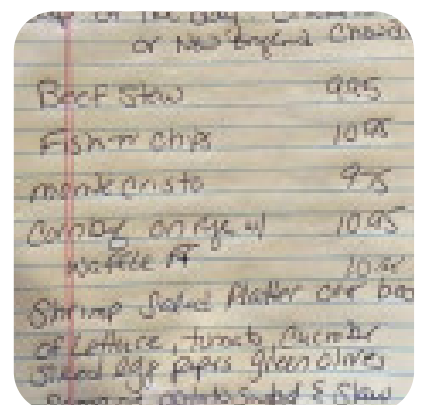 of The Day:
or New England Chowder
Beef Stew 9.95
Fish-n chips 10.95
monte cristo 9.95
on rye w/ 10.95
Waffle FF 10.95
Shrimp Salad Platter over bed
of Lettuce, tomato, cucumber
sliced egg green olives
potato salad &